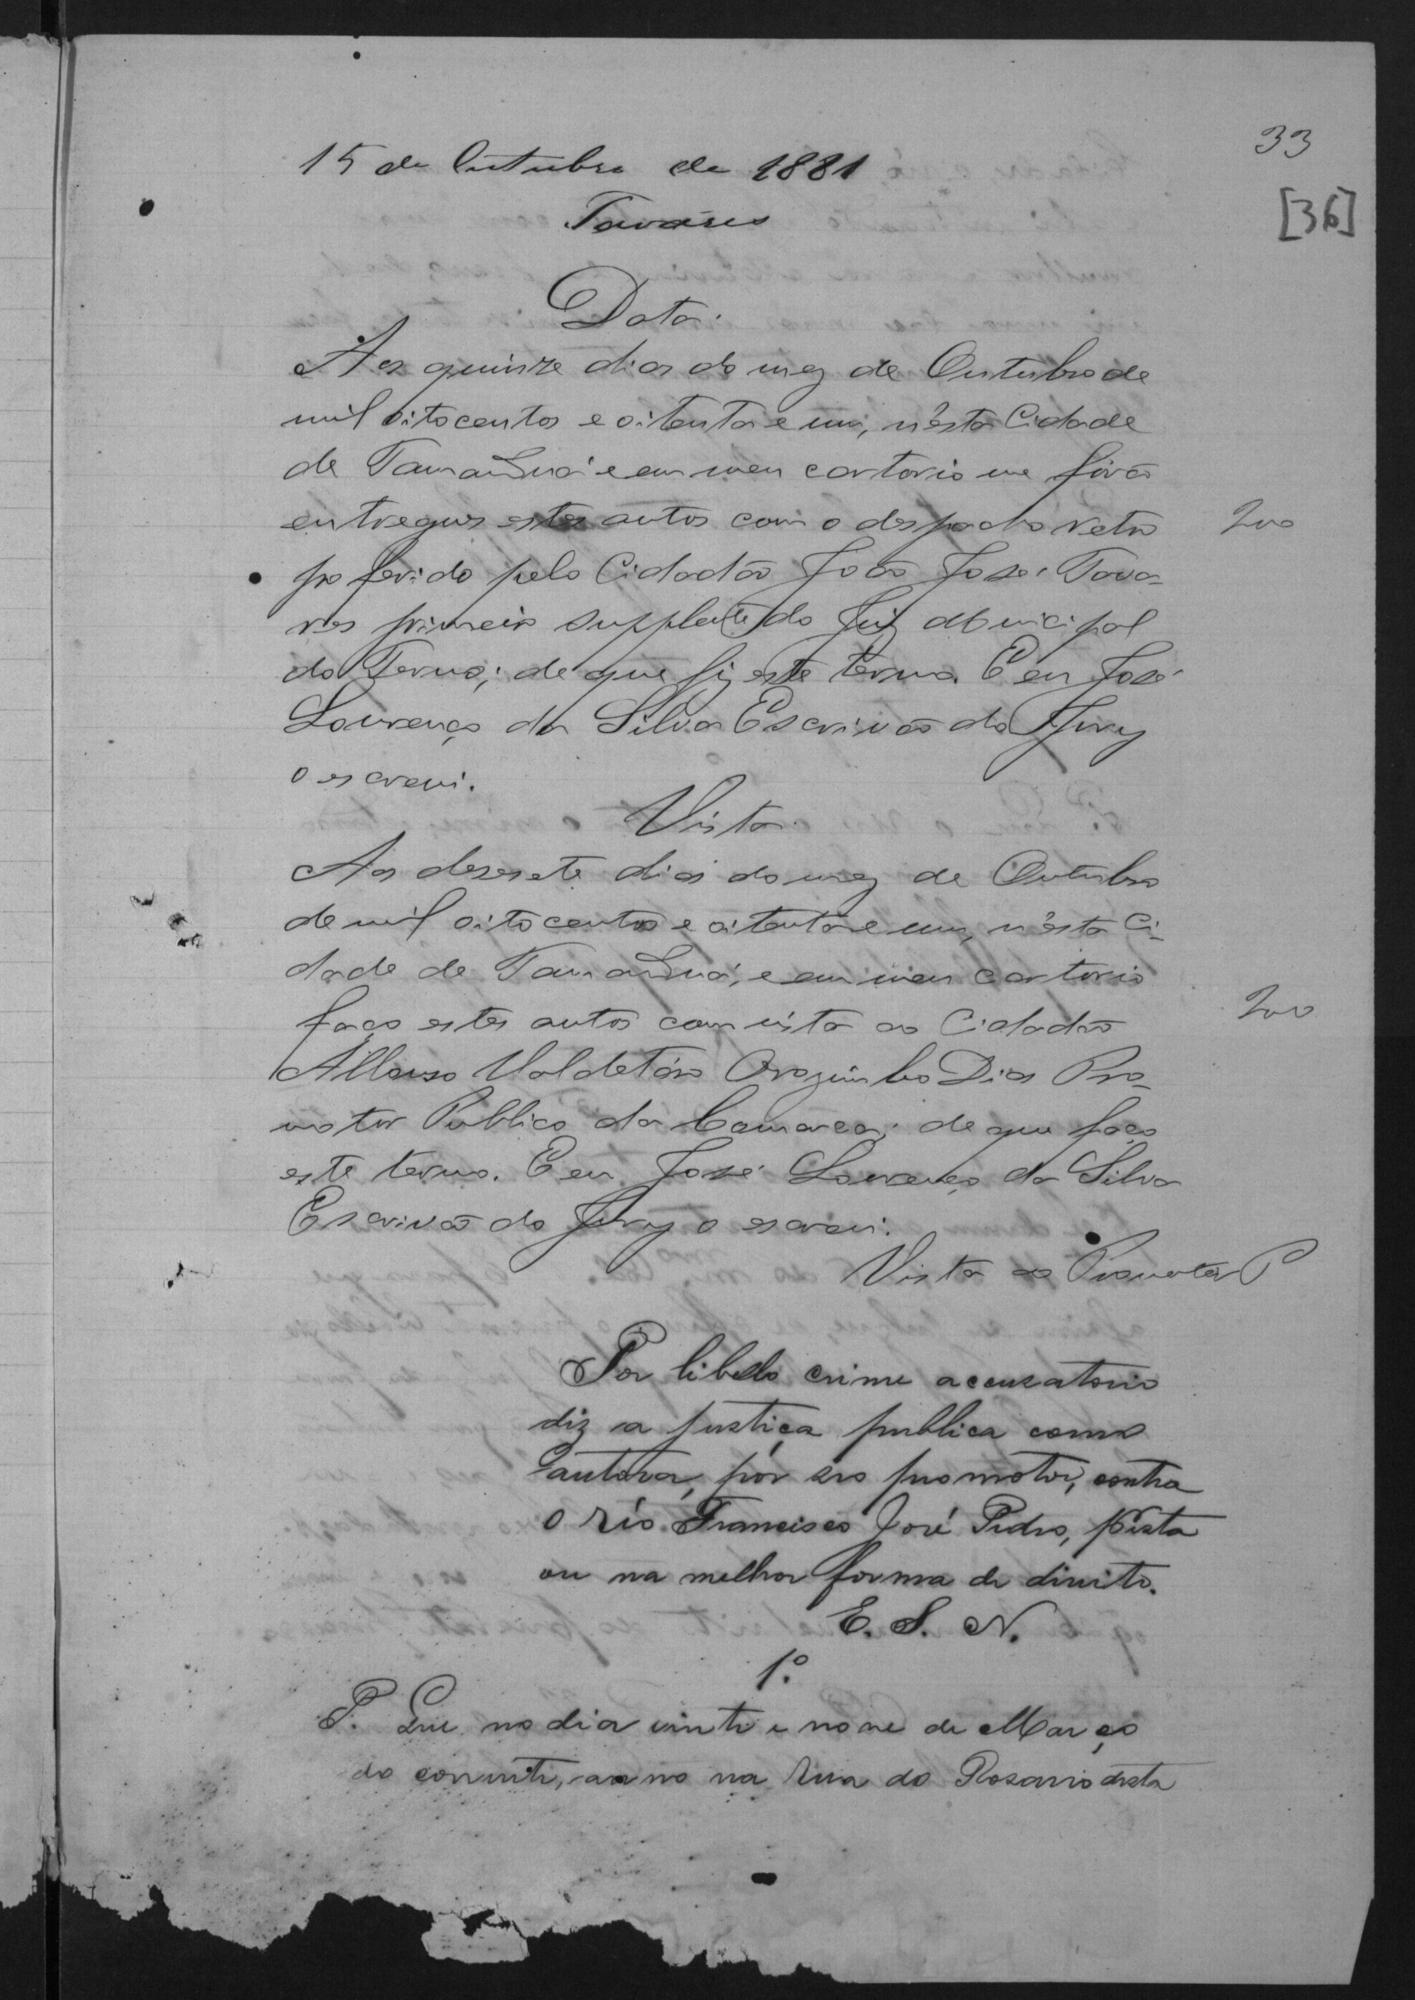 33
[36]
15 de Outubro de 1881
Tavares
Data.
Aos quinze dias do mez de Outubro de
mil oitocentos e oitenta e um, n'ésta Cidade
de Tamanduá e em meu cartorio me fôrão
entregues estes autos com o despacho retro
proferido pelo Cidadão João José Tava-
res primeiro supplente do Juiz Municipal
do Termo; de que fiz este termo. E eu José
Lourenço da Silva Escrivão do Jury
o escrevi.
200
Vista
Aos desesete dias do mez de Outubro
de mil oitocentos e oitenta e um, n'ésta Ci-
dade de Tamanduá, e em meu cartorio
faço estes autos com vista ao Cidadão
Valdetáro Orozimbo Dias Pro-
motor Publico da Comarca; de que faço
este termo. E eu José Lourenço da Silva
Escrivão do Jury o escrevi.
200
Vista ao Promotor P
Por libello crime accusatorio
diz a justiça publica como
autora, por seo promotor, contra
o réo Francisco José Pedro, p. esta
ou na melhor forma de direito.
E. S. N.
1º.
P. Que no dia vinte e nove de Março
do corrente, anno na rua do Rosario desta